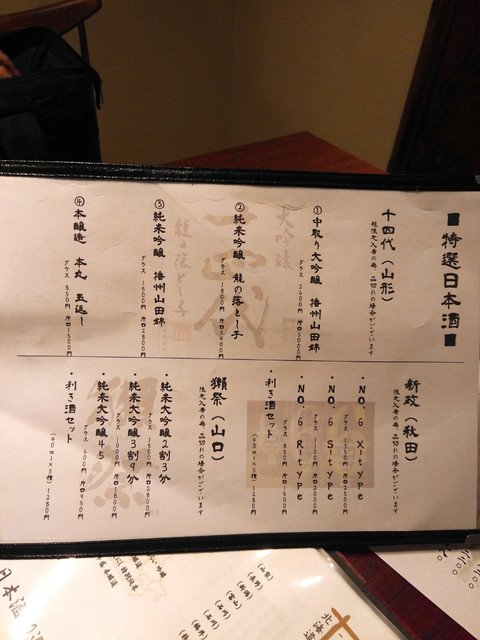 ■特選日本酒■
十四代（山形）
超限定入荷の為、品切れの場合がございます
①中取り大吟醸 播州山田錦
グラス 2600円 片口5000円
②純米吟醸 龍の落とし子
グラス 1800円 片口3400円
③純米吟醸 播州山田錦
グラス 1500円 片口2800円
④本醸造 本丸 玉返し
グラス 850円 片口1500円
新政（秋田）
限定入荷の為、品切れの場合がございます
・NO.6 Xtype
グラス 1350円 片口2500円
・NO.6 Stype
グラス 1100円 片口2000円
・NO.6 Rtype
グラス 850円 片口1500円
・利き酒セット
(40ml×3種) 1280円
獺祭（山口）
限定入荷の為、品切れの場合がございます
・純米大吟醸2割3分
グラス 1500円 片口2800円
・純米大吟醸3割9分
グラス 1000円 片口1800円
・純米大吟醸45
グラス 600円 片口950円
・利き酒セット
(40ml×3種) 1280円
大吟醸
十四代
龍の落とし子
獺祭
北海道
(山形)
(長野)
(新潟)
(富山)
(石川)
(石川)
(福井)
日本酒